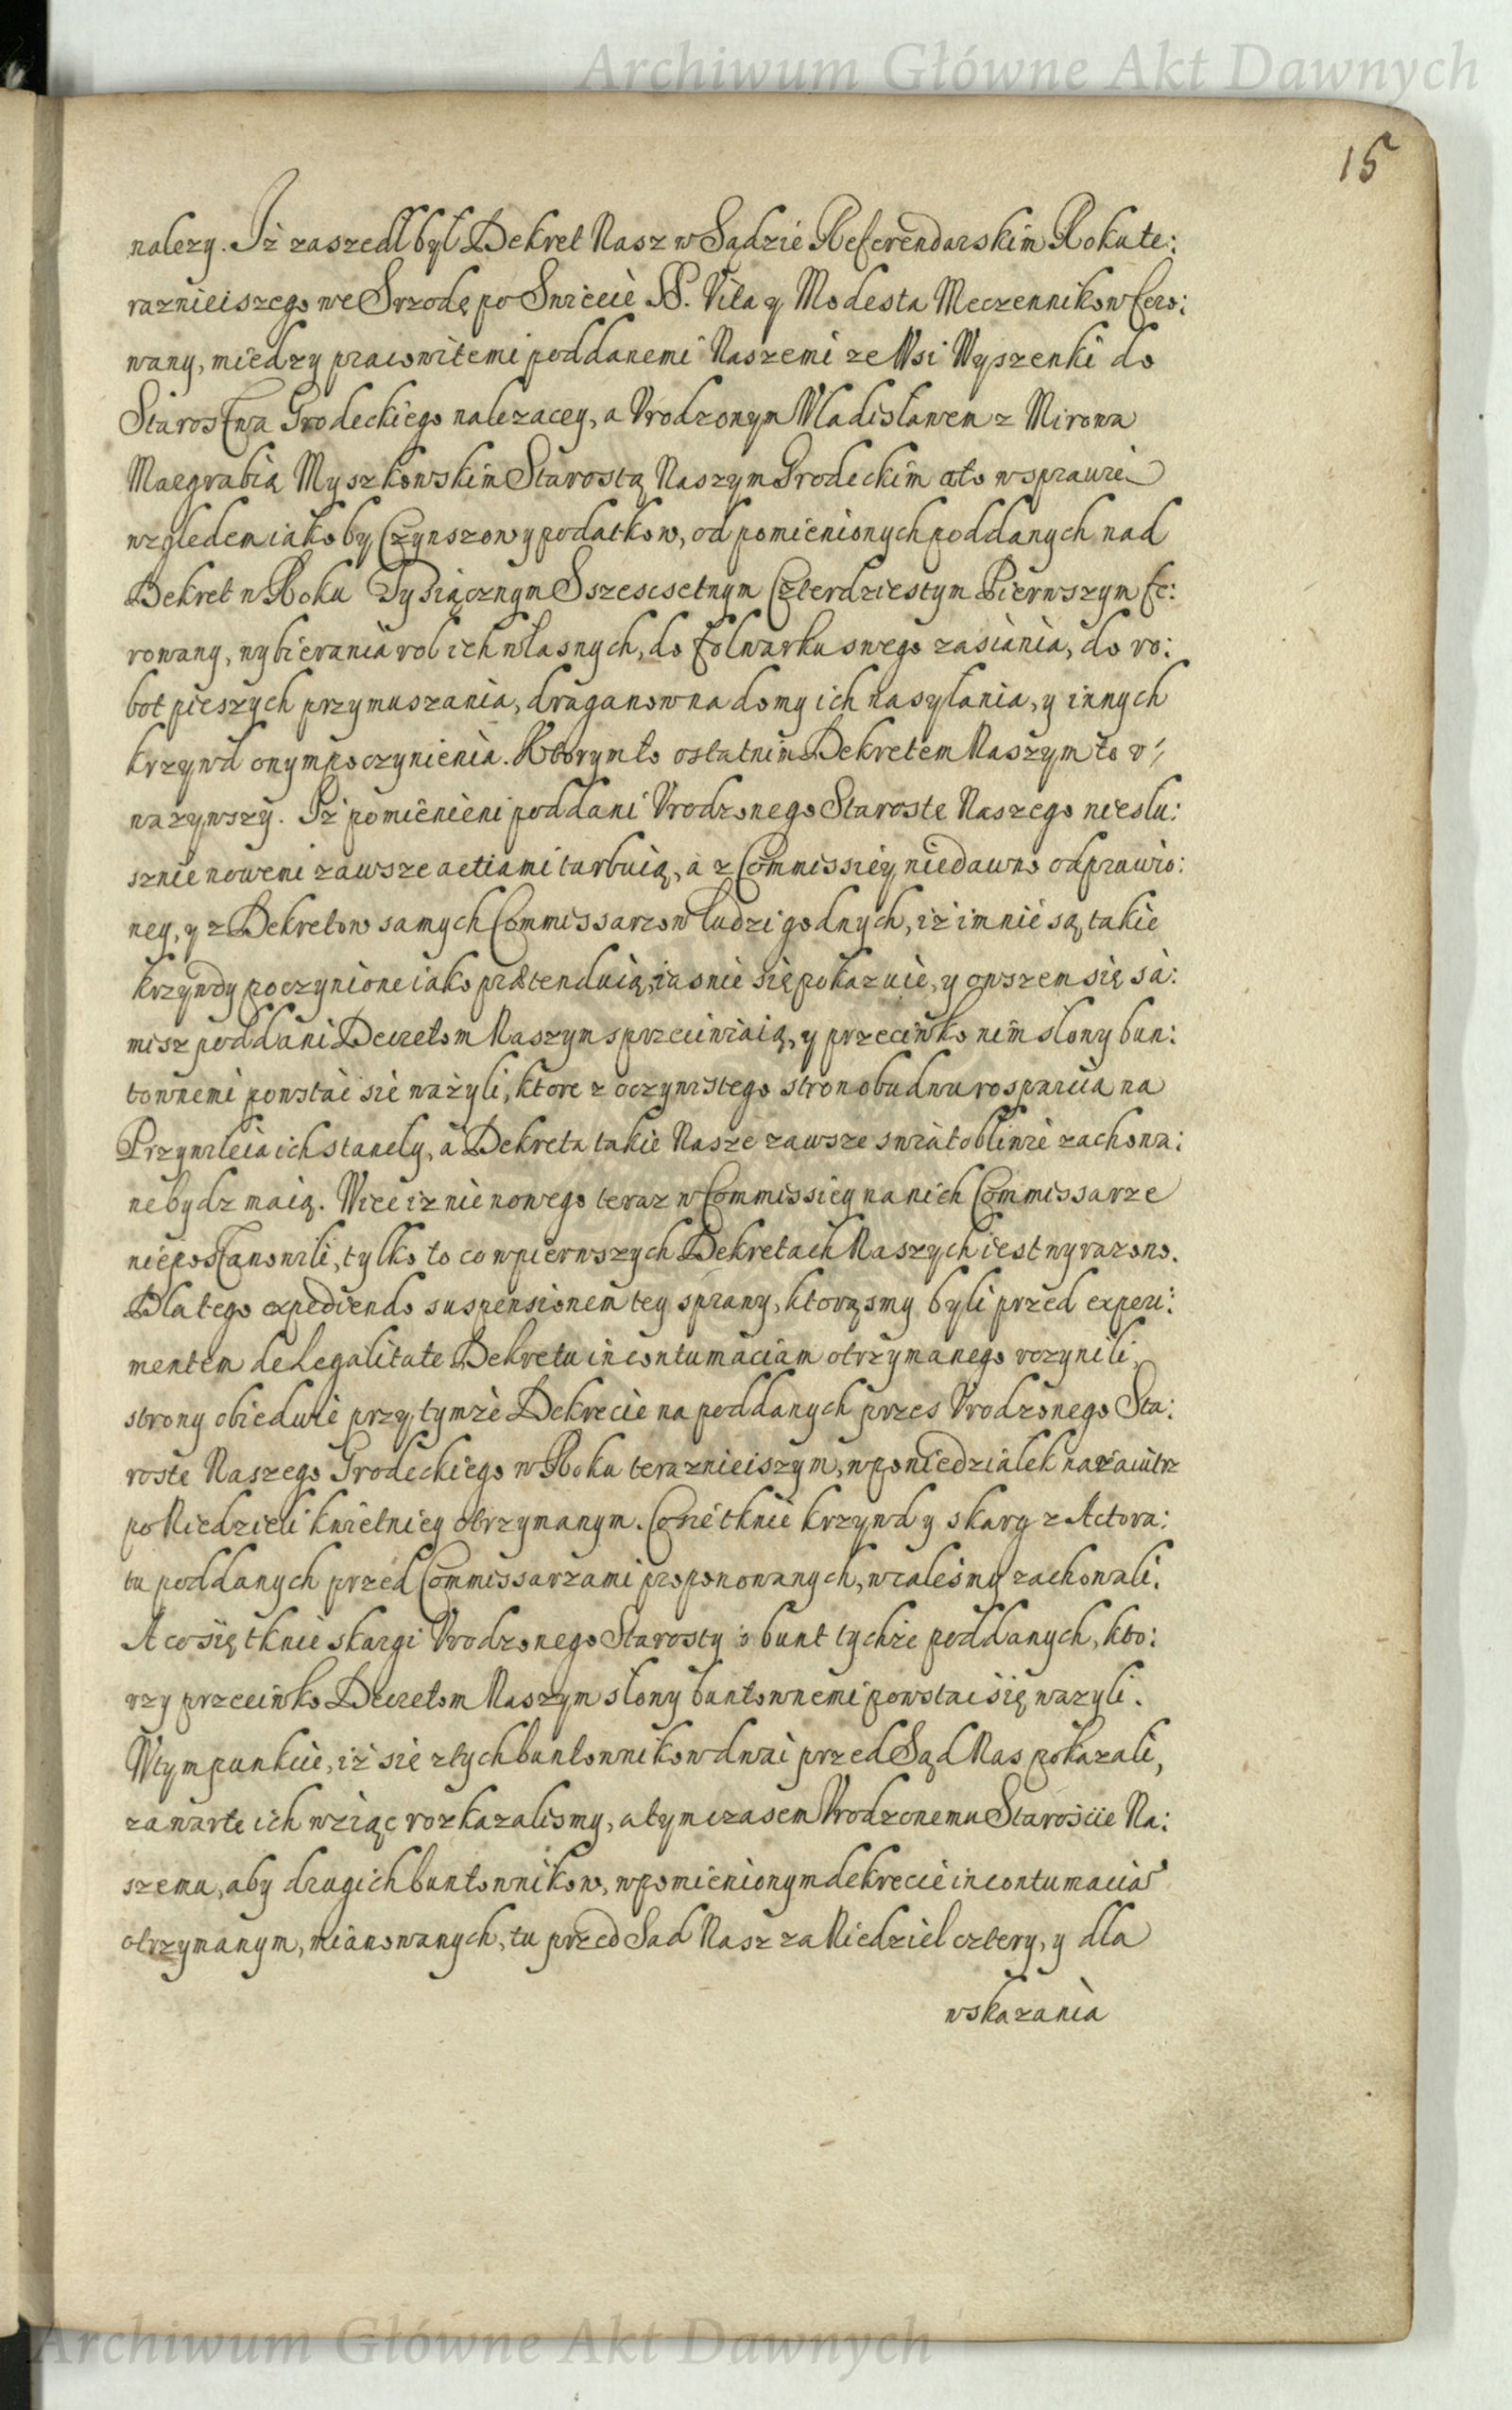 Archiwum Główne Akt Dawnych
15
nalezy. Iż zaszedł był Dekret Nasz w Sądzie Referendarskim Roku te:
raznieiszego we Srzodę po Swięcie SS. Vita y Modesta Meczennikow fero:
wany, miedzy pracowitemi poddanemi Naszemi ze Wsi Wyszenki do
Starostwa Grodeckiego nalezacey, a Vrodzonym Wladisławem z Mirowa
Margrabią Myszkowskim Starostą Naszym Grodeckim a to w sprawie
względem iakoby Czynszow y podatkow, od pomienionych poddanych nad
Dekret w Roku Tysiącznym Szescsetnym Czterdziestym Pierwszym fe:
rowany, wybierania rol ich własnych, do folwarku swego zasiania, do ro:
bot pieszych przymuszania, draganow na domy ich nasyłania, y innych
krzywd onym poczynienia. Ktorym to ostatnim Dekretem Naszym to v:
wazywszy. Iż pomienieni poddani Vrodzonego Staroste Naszego nieslu:
sznie nowemi zawsze actiami turbuią, a z Commissiey niedawno odprawio:
ney, y z Dekretow samych Commissarzow ludzi godnych, iż im nie są takie
krzywdy poczynione iako prætenduią, iasnie się pokazuie, y owszem się sa:
misz poddani Decretom Naszym sprzeciwiaią, y przeciwko nim słony bun:
townemi powstać sie ważyli, ktore z oczywistego stron obudwu rosparcia na
Przywileia ich stanely, a Dekreta takie Nasze zawsze swiątobliwie zachowa:
ne bydz maią. Więc iz nic nowego teraz w Commissiey na nich Commissarze
nie postanowili, tylko to co w pierwszych Dekretach Naszych iest wyrazono.
Dla tego expediendo suspensionem tey sprawy, ktorąsmy byli przed experi:
mentem de Legalitate Dekretu in contumaciam otrzymanego vczynili,
strony obiedwie przy tymże Dekrecie na poddanych przes Vrodzonego Sta:
roste Naszego Grodeckiego w Roku teraznieiszym, w poniedziałek nazaiutrz
po Niedzieli kwietniey otrzymanym. Co sie tknie krzywd y skarg z Actora:
tu poddanych przed Commissarzami proponowanych, wcalesmy zachowali.
A co się tknie skargi Vrodzonego Starosty o bunt tychże poddanych, kto:
rzy przeciwko Decretom Naszym słony buntownemi powstać się wazyli.
W tym punkcie, iż sie z tych buntownikow dwai przed Sąd Nas pokazali,
za warte ich wziąc rozkazalismy, a tym czasem Vrodzonemu Staroście Na:
szemu, aby drugich buntownikow, w pomienionym dekrecie in contumacia
otrzymanym, mianowanych, tu przed Sad Nasz za Niedziel cztery, y dla
wskazania
Archiwum Główne Akt Dawnych